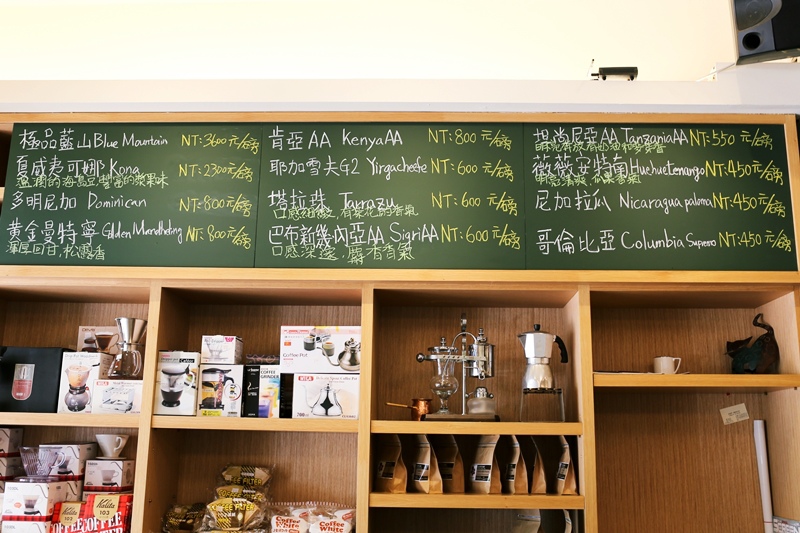 極品藍山 Blue Mountain NT:3600元/磅
夏威夷可娜 Kona NT:2300元/磅
溫潤的海島豆,豐富的漿果味
多明尼加 Dominican NT:800元/磅
黃金曼特寧 Golden Mandheling NT:800元/磅
渾厚回甘,松露香
肯亞AA Kenya AA NT:800元/磅
耶加雪夫G2 Yirgacheffe NT:600元/磅
塔拉珠 Tarrazu NT:600元/磅
巴布新幾內亞AA Sigri AA NT:600元/磅
坦尚尼亞AA Tanzania AA NT:550元/磅
薇薇安特南 Huehuetenango NT:450元/磅
尼加拉瓜 Nicaragua paloma NT:450元/磅
哥倫比亞 Columbia Supremo NT:450元/磅
Coffee Pot
COFFEE
GRINDER
Kalita
103
COFFEE
COFFEE FILTER
Coffee
White